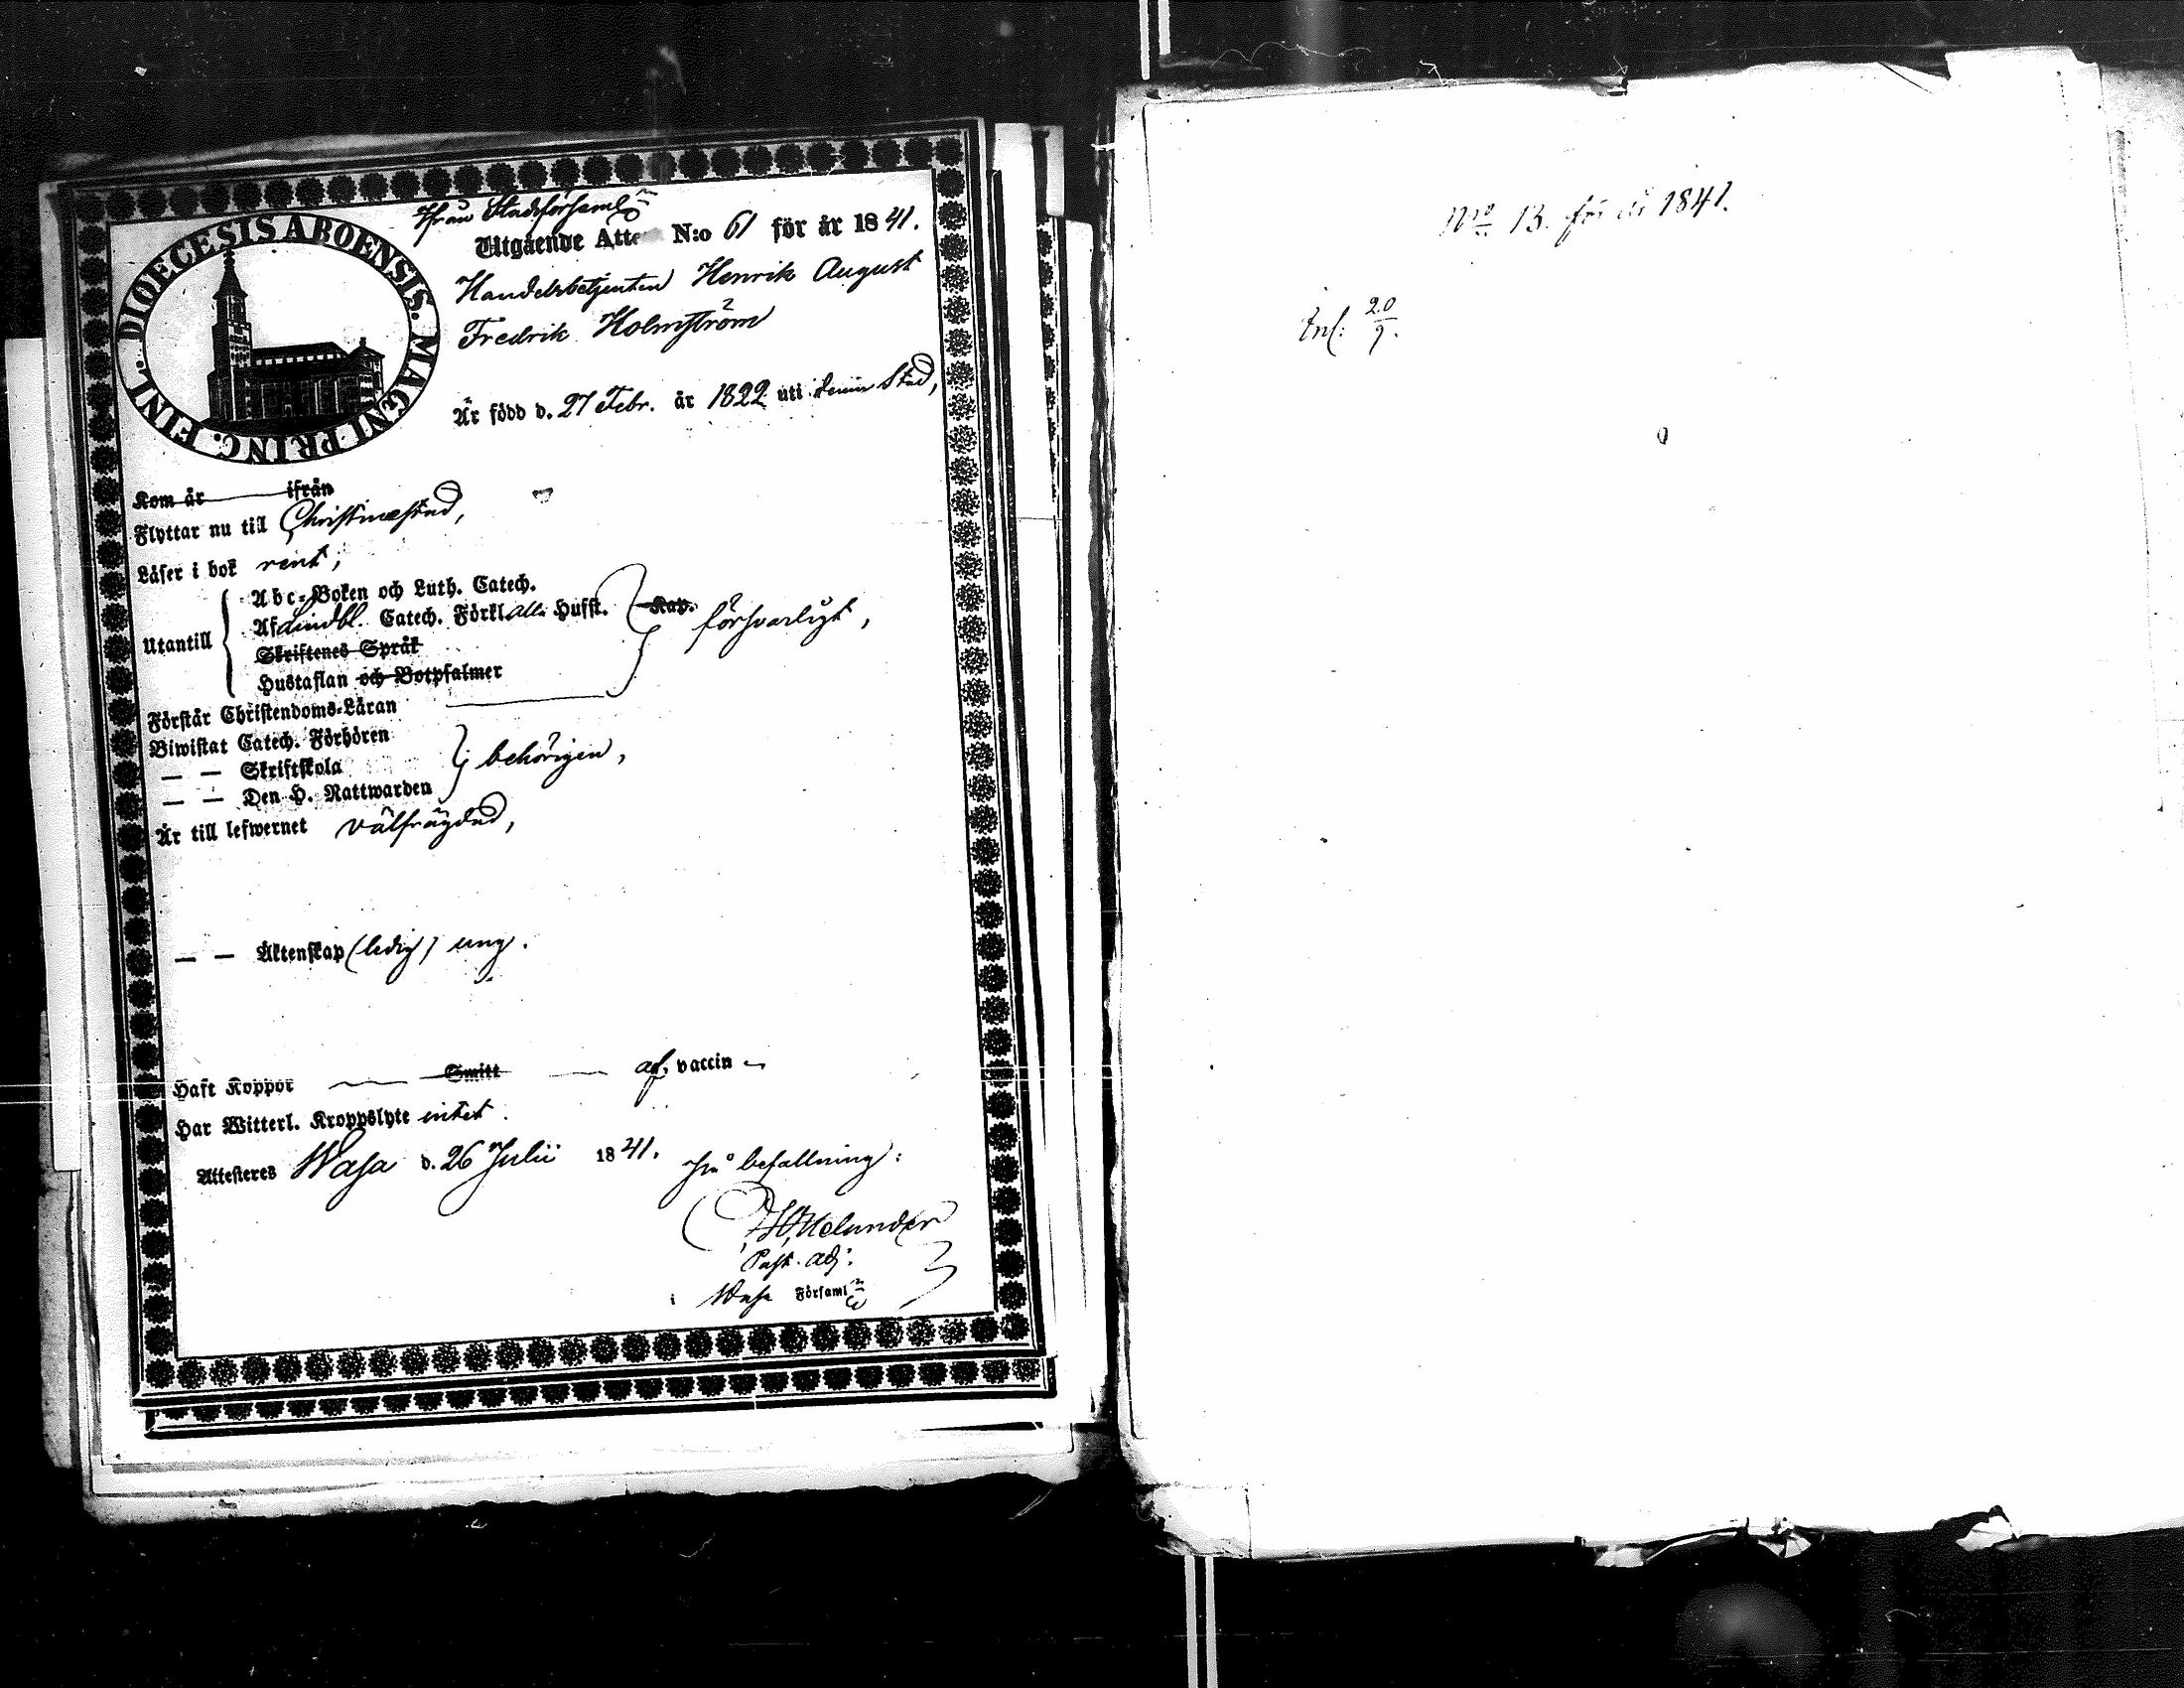 DIOECESIS ABOENSIS. MAGNI PRINC. FINL.
Ifrån Stadsförsaml:n
Utgående Atte N:o 61 för år 1841.
Handelsbetjenten Henrik August
Fredrik Holmström
Är född d. 27 Febr. år 1822 uti denna Stad,
Kom år ifrån
Flyttar nu till Christinæstad,
Läser i bok rent,
Utantill
Abc-Boken och Luth. Catech.
Af Lindbl. Catech. Förkl. alla Hufst. Kap. försvarligt,
Skriftenes Språk
Hustaflan och Botpsalmer
Förstår Christendoms-Läran
Biwistat Catech. Förhören
— — Skriftskola behörigen,
— — Den H. Nattwarden
Är till lefwernet välfrägdad,
— — Äktenskap (ledig) ung.
Haft Koppor — Smitt — af vaccin
Har Witterl. Kroppslyte intet.
Attesteres Wasa d. 26 Julii 1841. På befallning:
Melander
Past. adj:
i Wasa Församl:n
N:o 13. för år 1841.
Inl: 20/9.